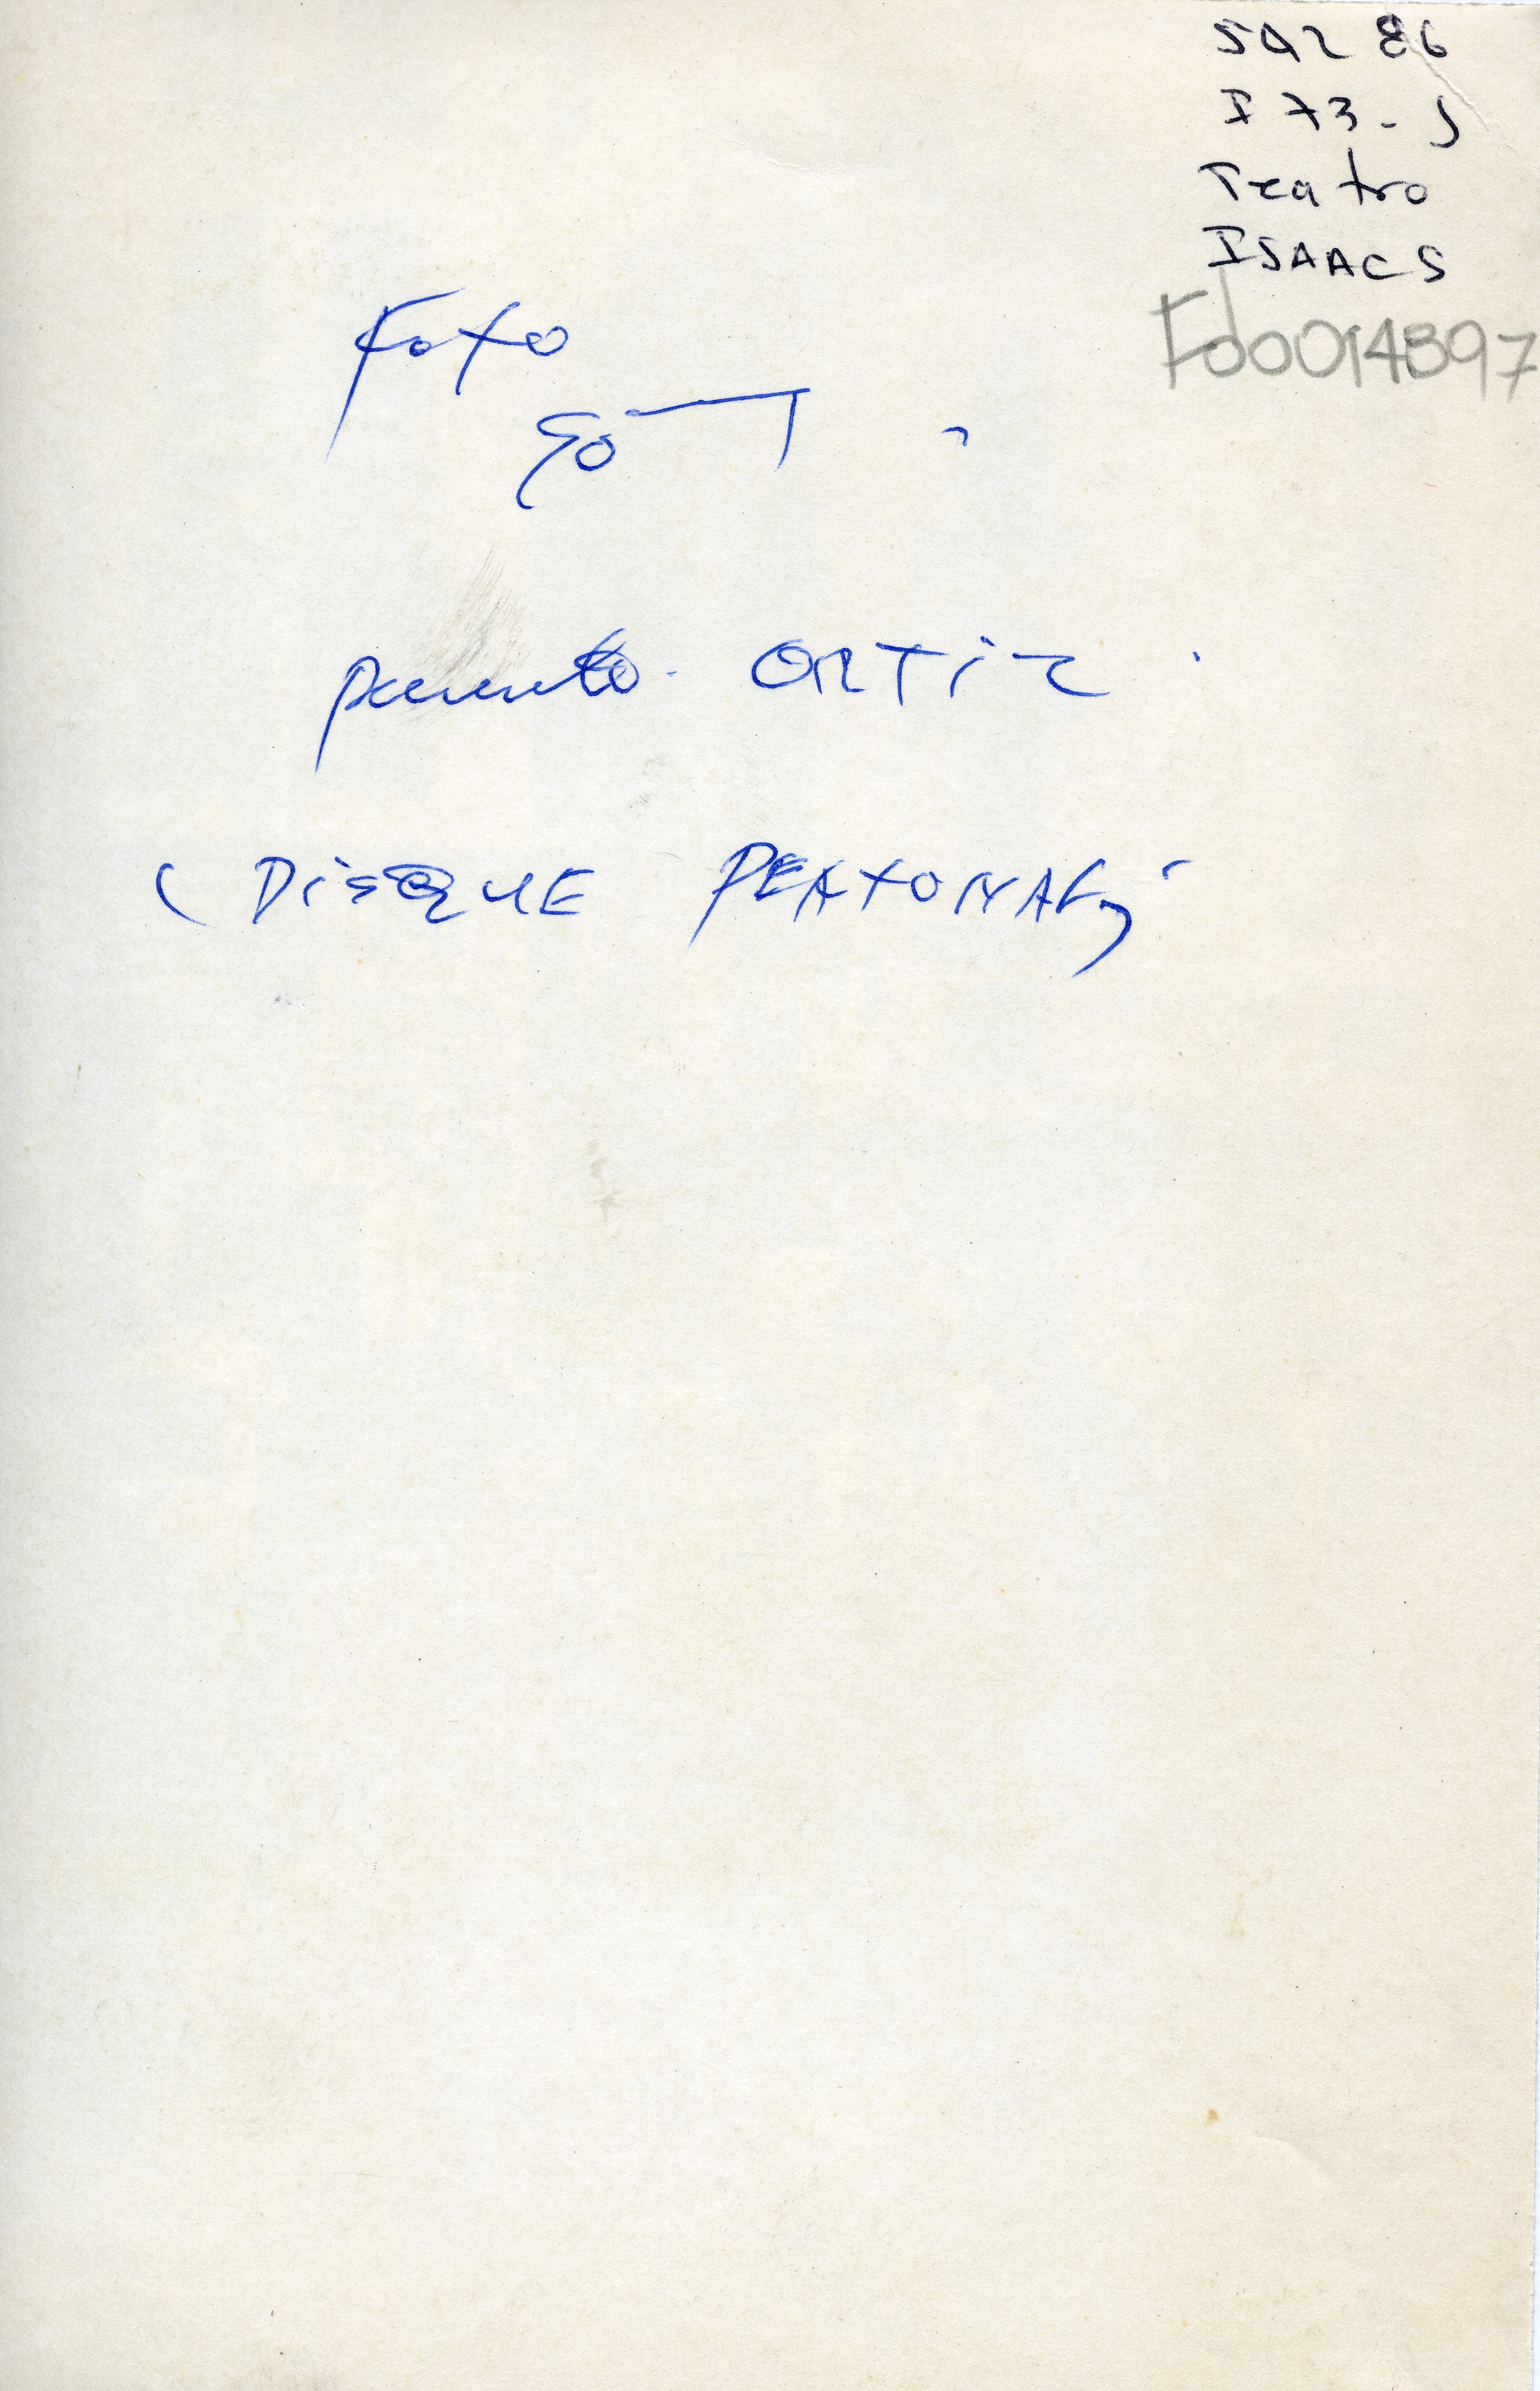 SAL 86
I 73-J
Teatro
ISAACS
Fd0014897
Foto
puente ORTIZ.
(DisQUE PEATONAL)